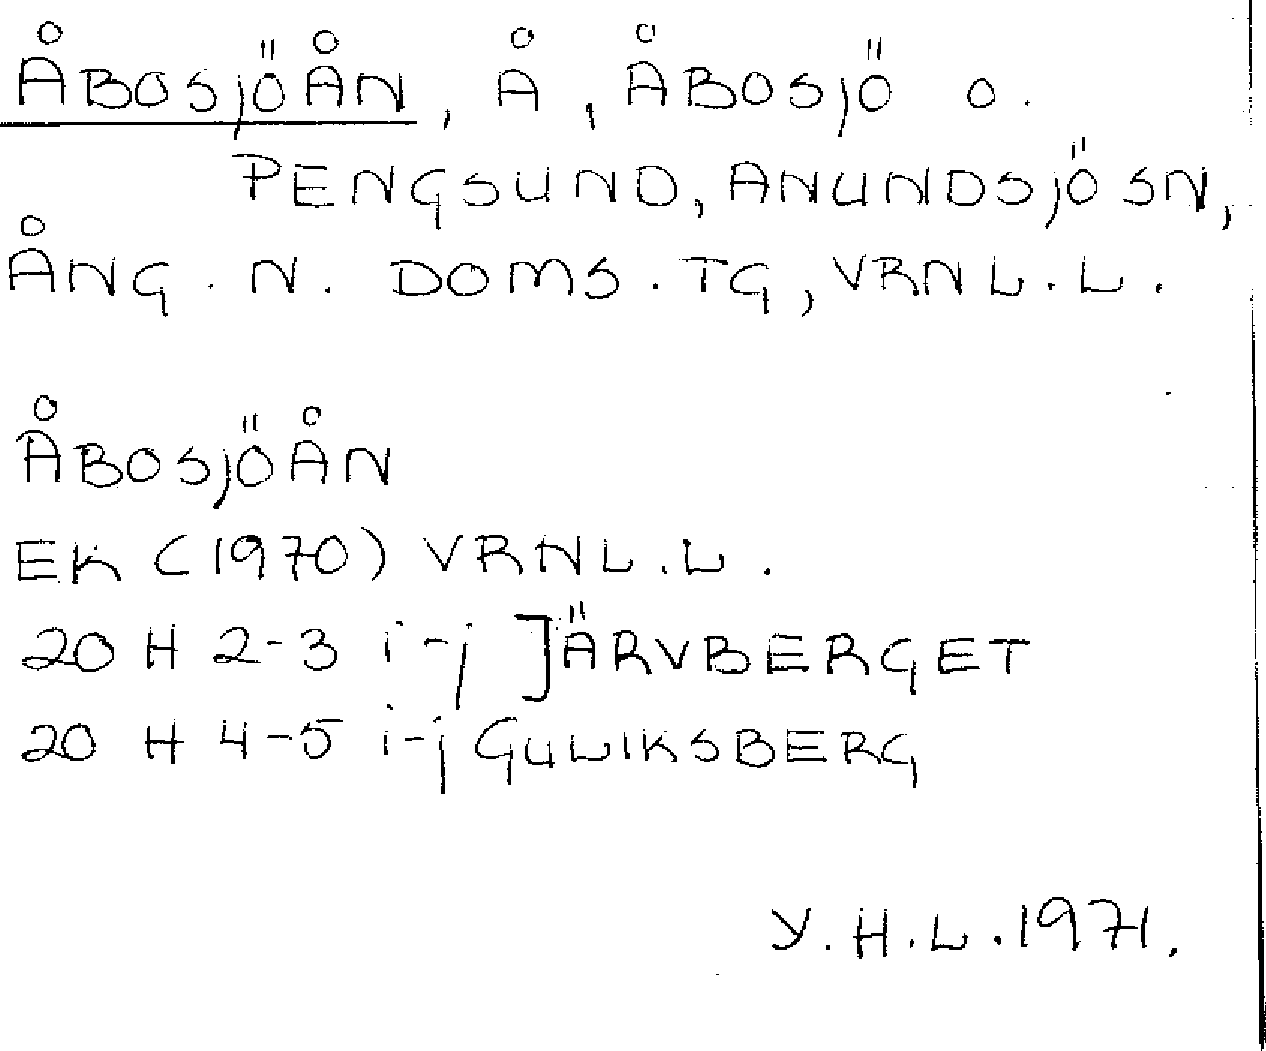 ÅBOSJÖÅN, Å, ÅBOSJÖ O.
PENGSUND, ANUNDSJÖ SN,
ÅNG. N. DOMS. TG, VRNL.L.
ÅBOSJÖÅN
EK (1970) VRNL.L.
20 H 2-3 i-j JÄRVBERGET
20 H 4-5 i-j GULLIKSBERG
Y.H.L.1971.